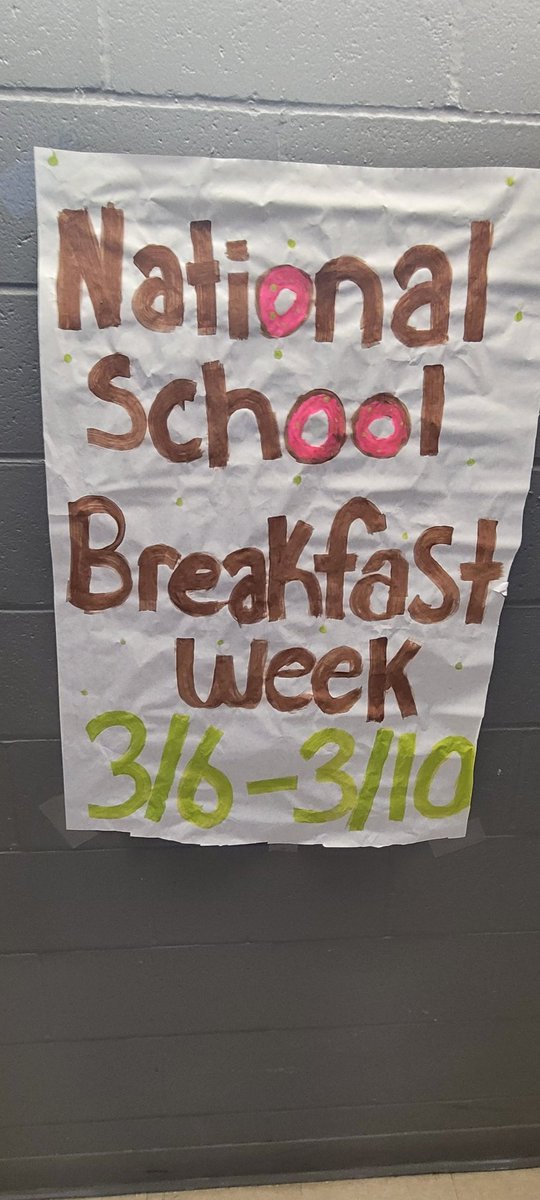 National
School
Breakfast
week
3/6-3/10